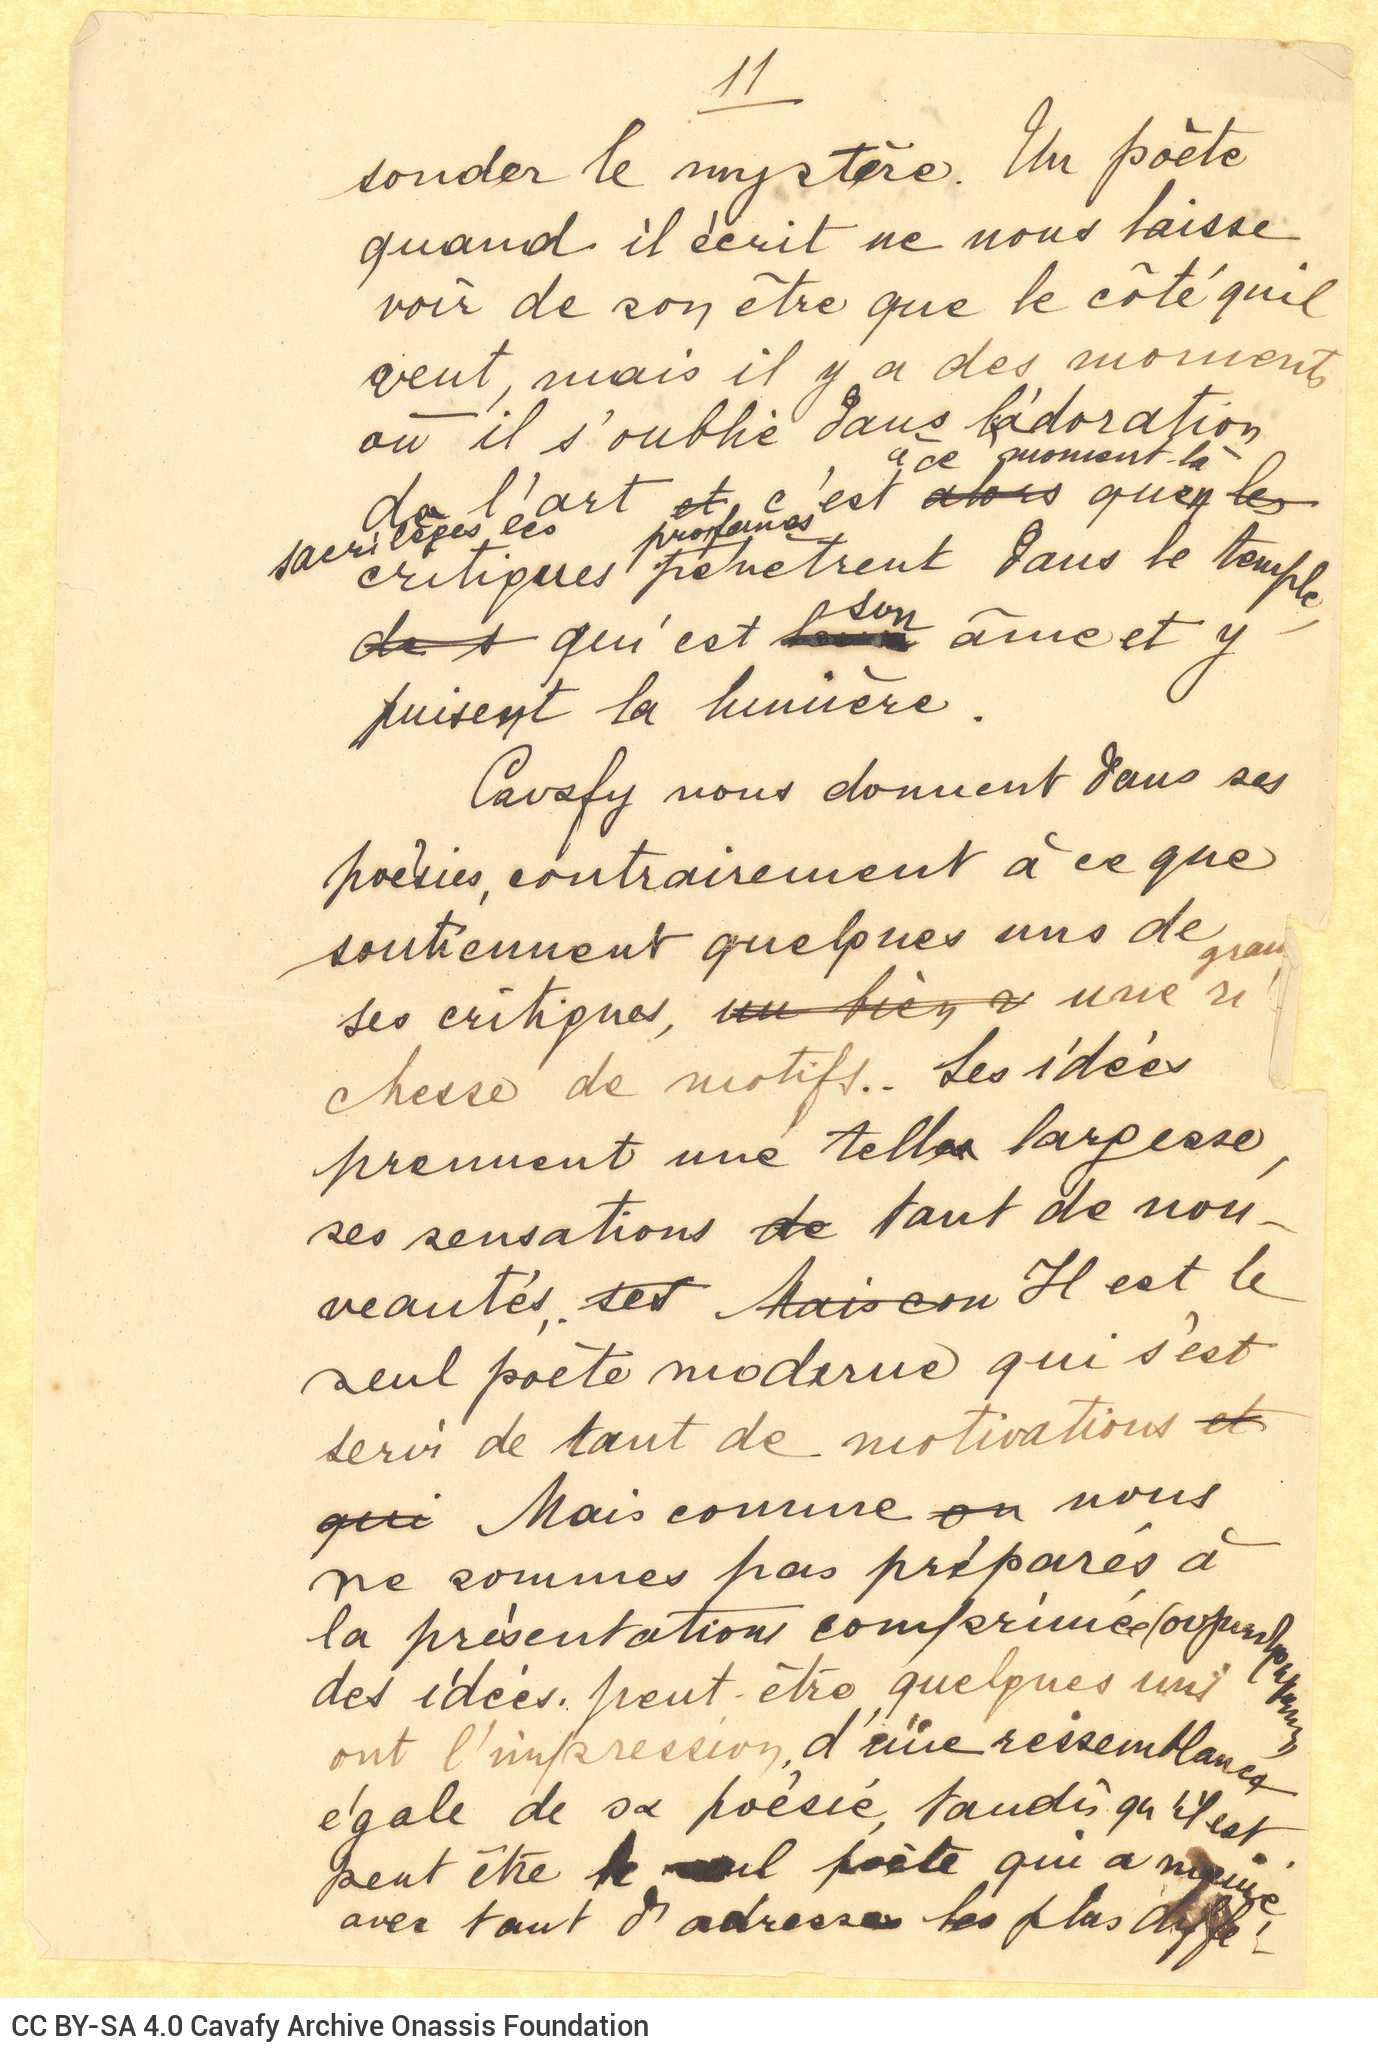 11
sonder le mystère. Un poète
quand il écrit ne nous laisse
voir de son être que le côté qu'il
veut, mais il y a des moments
où il s'oublie dans l'adoration
à ce moment-là
de l'art et c'est alors que les
sacrilèges les profanes
critiques pénètrent dans le temple,
de s qui est son âme et y
puisent la lumière.
Cavafy nous donnent dans ses
poésies, contrairement à ce que
soutiennent quelques uns de
gran
ses critiques, un bien s une ri
chesse de motifs.. Les idées
prennent une telle largesse,
ses sensations de tant de nou-
veautés,. ses Mais con Il est le
seul poète moderne qui s'est
servi de tant de motivations et
qui Mais comme on nous
ne sommes pas préparés à
la présentations comprimée (ou
des idées. peut-être quelques uns
ont l'impression, d'une ressemblance
égale de sa poésie, tandis qu'il est
peut être le seul poète qui a manié
avec tant d'adresse les plus diffé-
CC BY-SA 4.0 Cavafy Archive Onassis Foundation